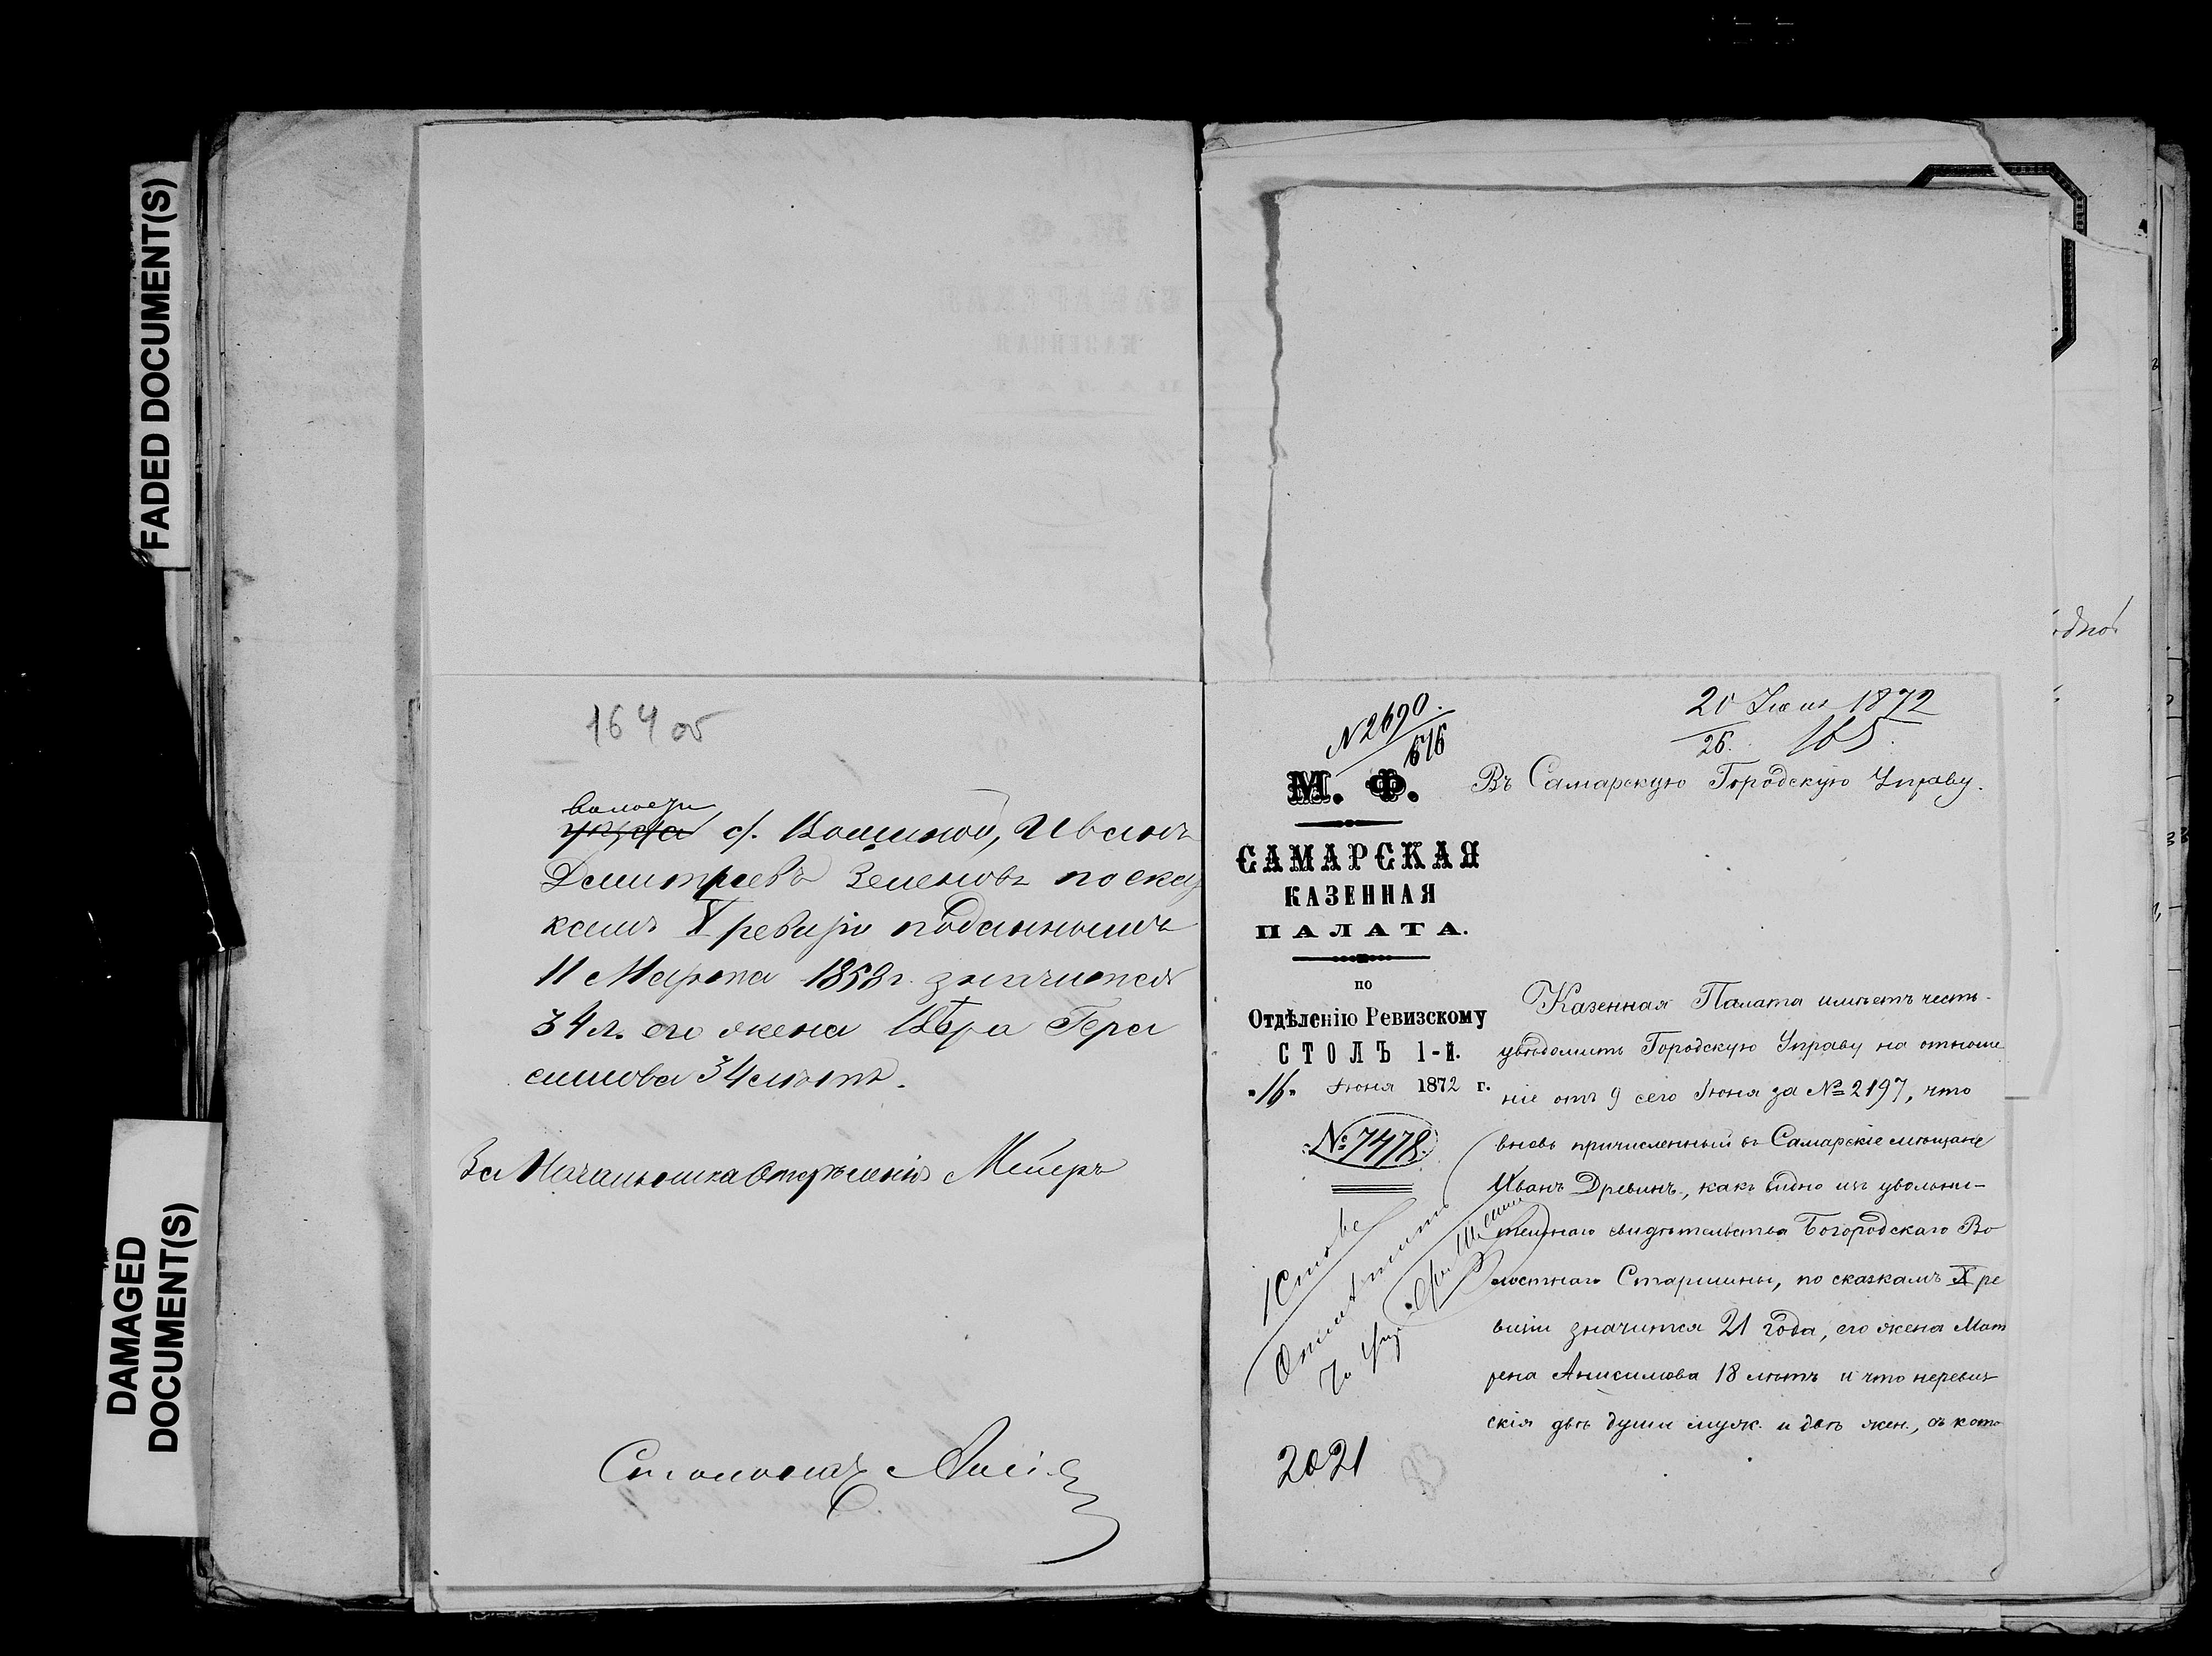 FADED DOCUMENT(S)
DAMAGED
DOCUMENT(S)
164 об
волости
уѣзда с. Кошиной, Иванъ
Дмитріевъ Зеленовъ по сказ
камъ X ревизіи поданнымъ
11 Марта 1858 г. значится
34 л. его жена Вѣра Гера
симова 34 лѣтъ.
За Начальника Отдѣленія Мейеръ
Столоначальникъ
N 2690.
616
20 Іюня 1872
26. 165.
М. Ф.
САМАРСКАЯ
КАЗЕННАЯ
ПАЛАТА.
по
Отдѣленію Ревизскому
СТОЛЪ 1-й.
„16„ Іюня 1872 г.
№ 7478.
1 Столъ
2021
Въ Самарскую Городскую Управу.
Казенная Палата имѣетъ честь
увѣдомить Городскую Управу на отноше
ніе отъ 9 сего Іюня за № 2197, что
вновь причисленный въ Самарскіе мѣщане
Иванъ Древинъ, какъ видно изъ увольни-
тельнаго свидѣтельства Богородскаго Во
лостнаго Старшины, по сказкамъ X ре
визіи значится 21 года, его жена Мат
рена Анисимова 18 лѣтъ и что неревиз
скія двѣ души муж. и двѣ жен., о кото